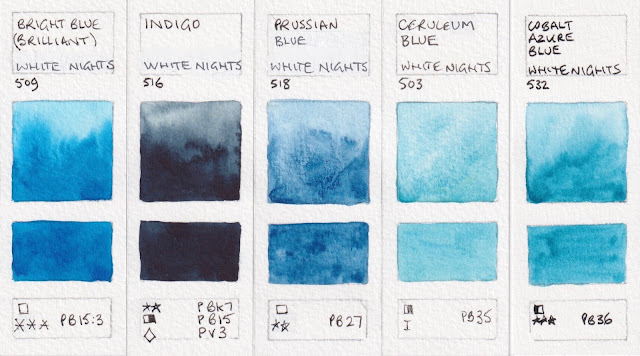 BRIGHT BLUE
(BRILLIANT)
WHITE NIGHTS
509
PB15:3
INDIGO
WHITE NIGHTS
516
PBK7
PB15
PV3
PRUSSIAN
BLUE
WHITE NIGHTS
518
PB27
CERULEUM
BLUE
WHITE NIGHTS
503
I
PB35
COBALT
AZURE
BLUE
WHITE NIGHTS
532
PB36